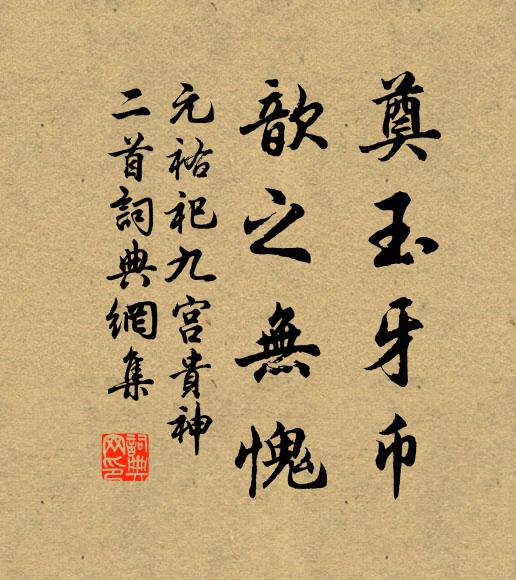 奠玉牙币
歆之無愧
元祐祀九宫貴神
二首詞典網集
詞典网印